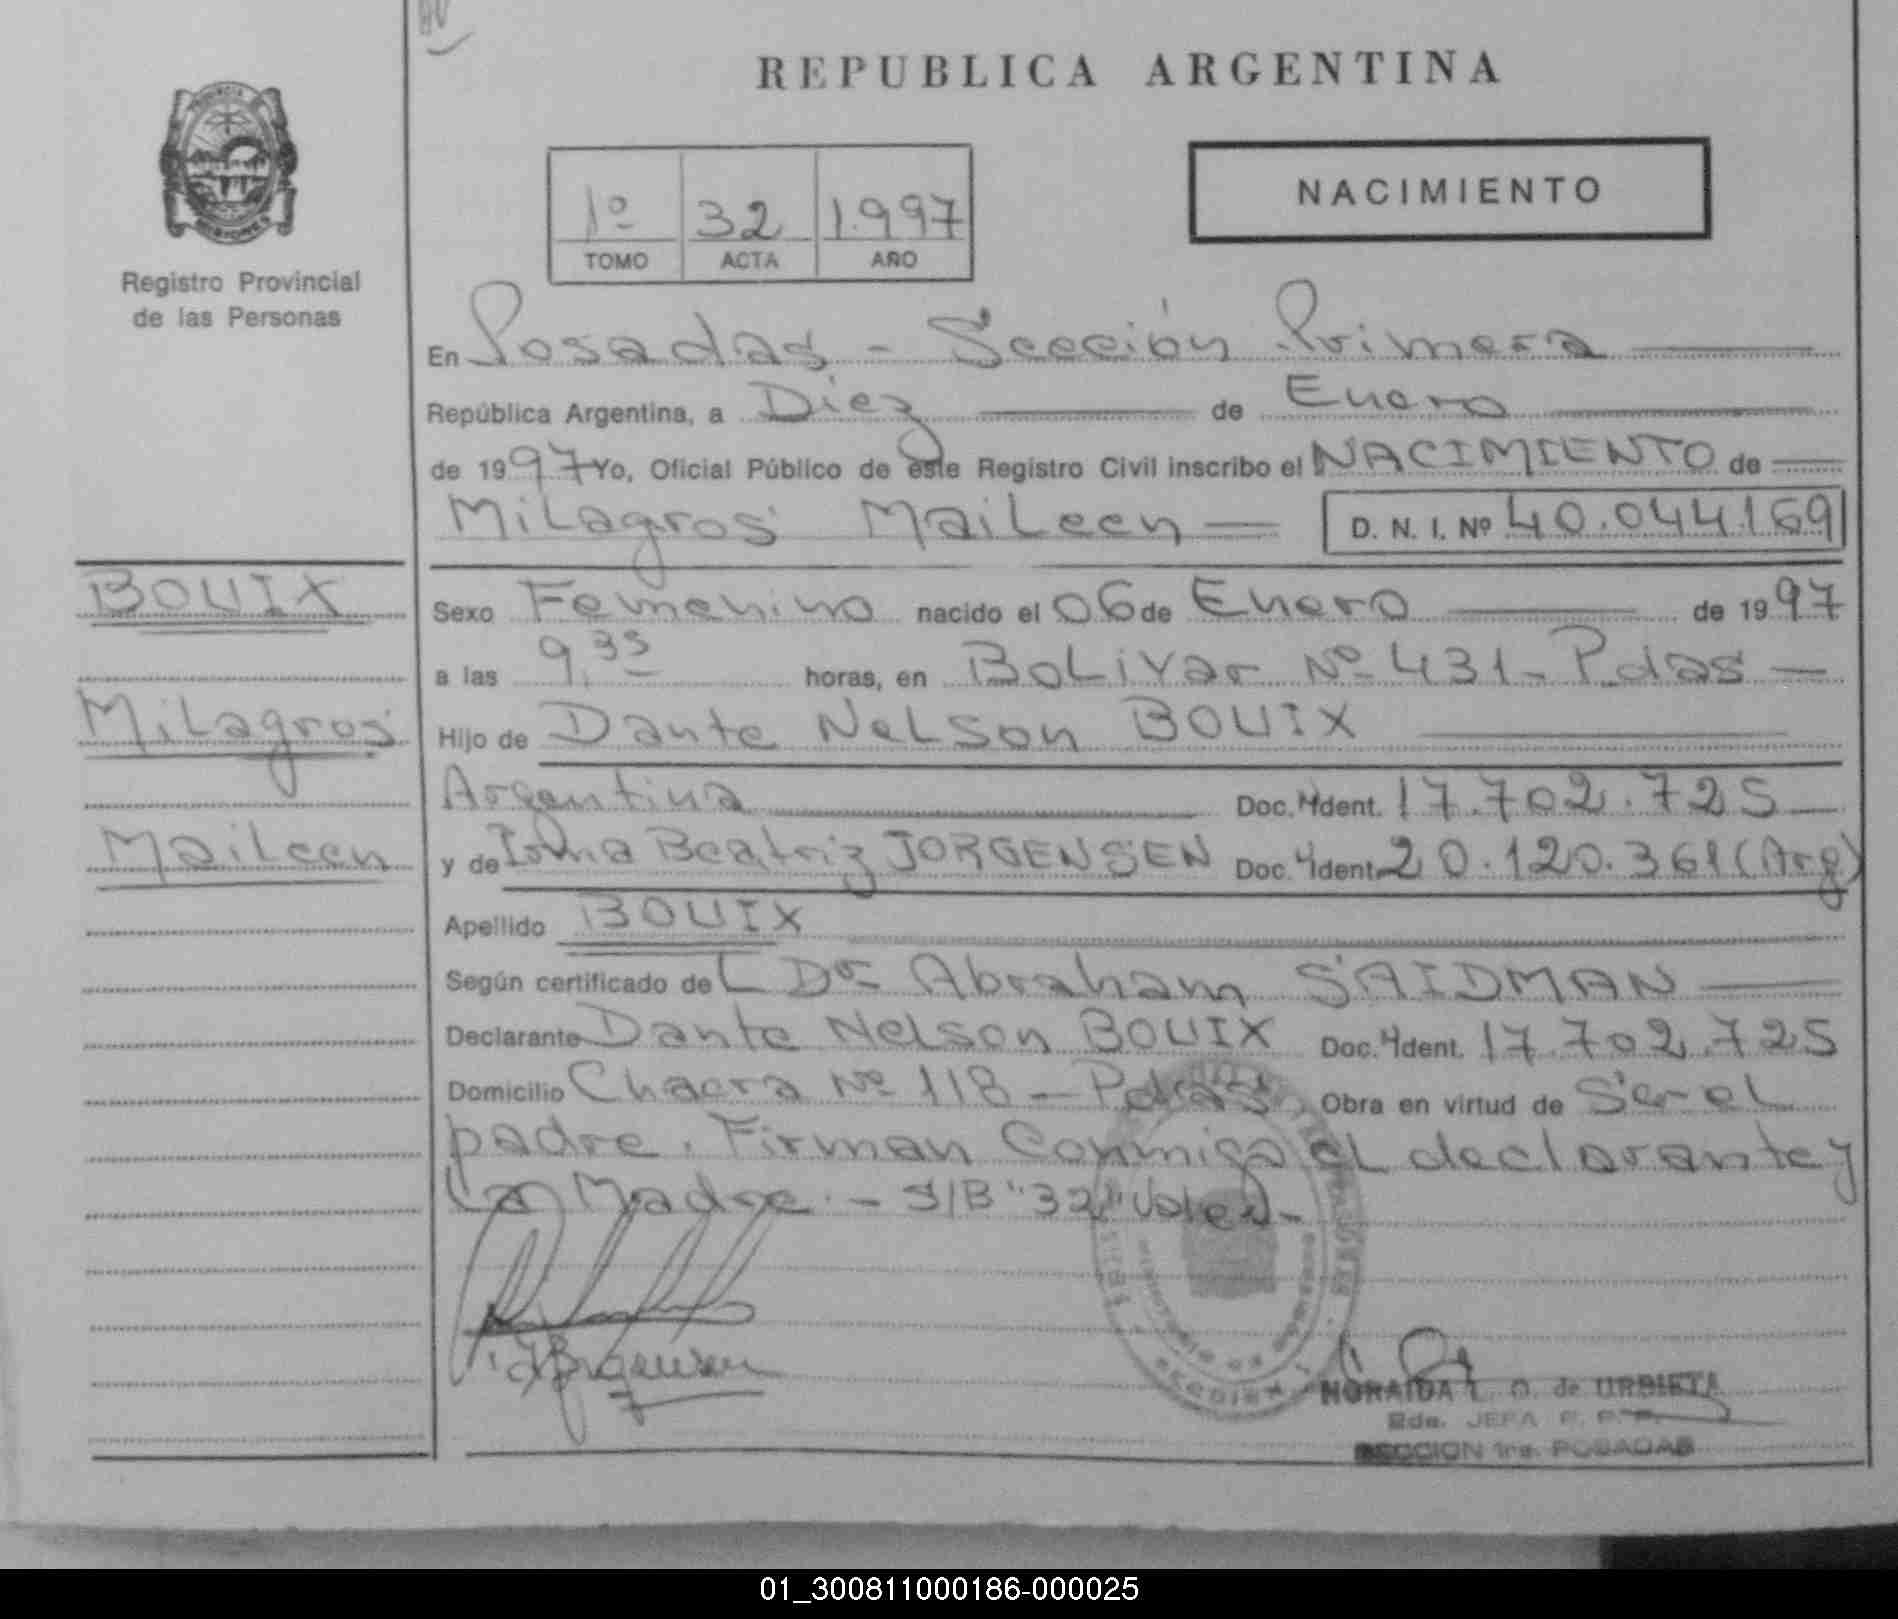 REPUBLICA ARGENTINA
PROVINCIA
MISIONES
Registro Provincial
de las Personas
1º 32 1.997
TOMO ACTA AÑO
NACIMIENTO
En Posadas - Sección Primera
República Argentina, a Diez de Enero
de 1997 Yo, Oficial Público de este Registro Civil inscribo el NACIMIENTO de
Milagros Maileen D. N. I. Nº 40.044.169
BOUIX
Milagros
Maileen
Sexo Femenino nacido el 06 de Enero de 1997
a las 9,35 horas, en Bolivar Nº 431 - Pdas -
Hijo de Dante Nelson BOUIX
Argentina Doc. Ident. 17.702.725
y de Irma Beatriz JORGENSEN Doc. Ident. 20.120.361 (Arg)
Apellido BOUIX
Según certificado de L Dr Abraham SAIDMAN
Declarante Dante Nelson BOUIX Doc. Ident. 17.702.725
Domicilio Chacra Nº 118 - Pdas Obra en virtud de Ser el
padre. Firman Conmigo el declarante y
La Madre. - S/B "32" Vale. -
NORAIDA L. O. de URBIETA
SECCION 1ra. POSADAS
01_300811000186-000025